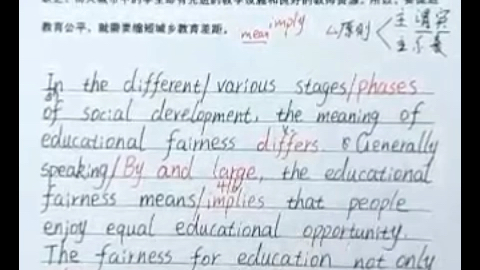 教育公平，就需要缩短城乡教育差距。 mean imply △原则 主谓宾 主系表
In the different/various stages/phases
of social development, the meaning of
educational fairness differs. Generally
speaking/By and large, the educational
fairness means/implies that people
enjoy equal educational opportunity.
The fairness for education not only